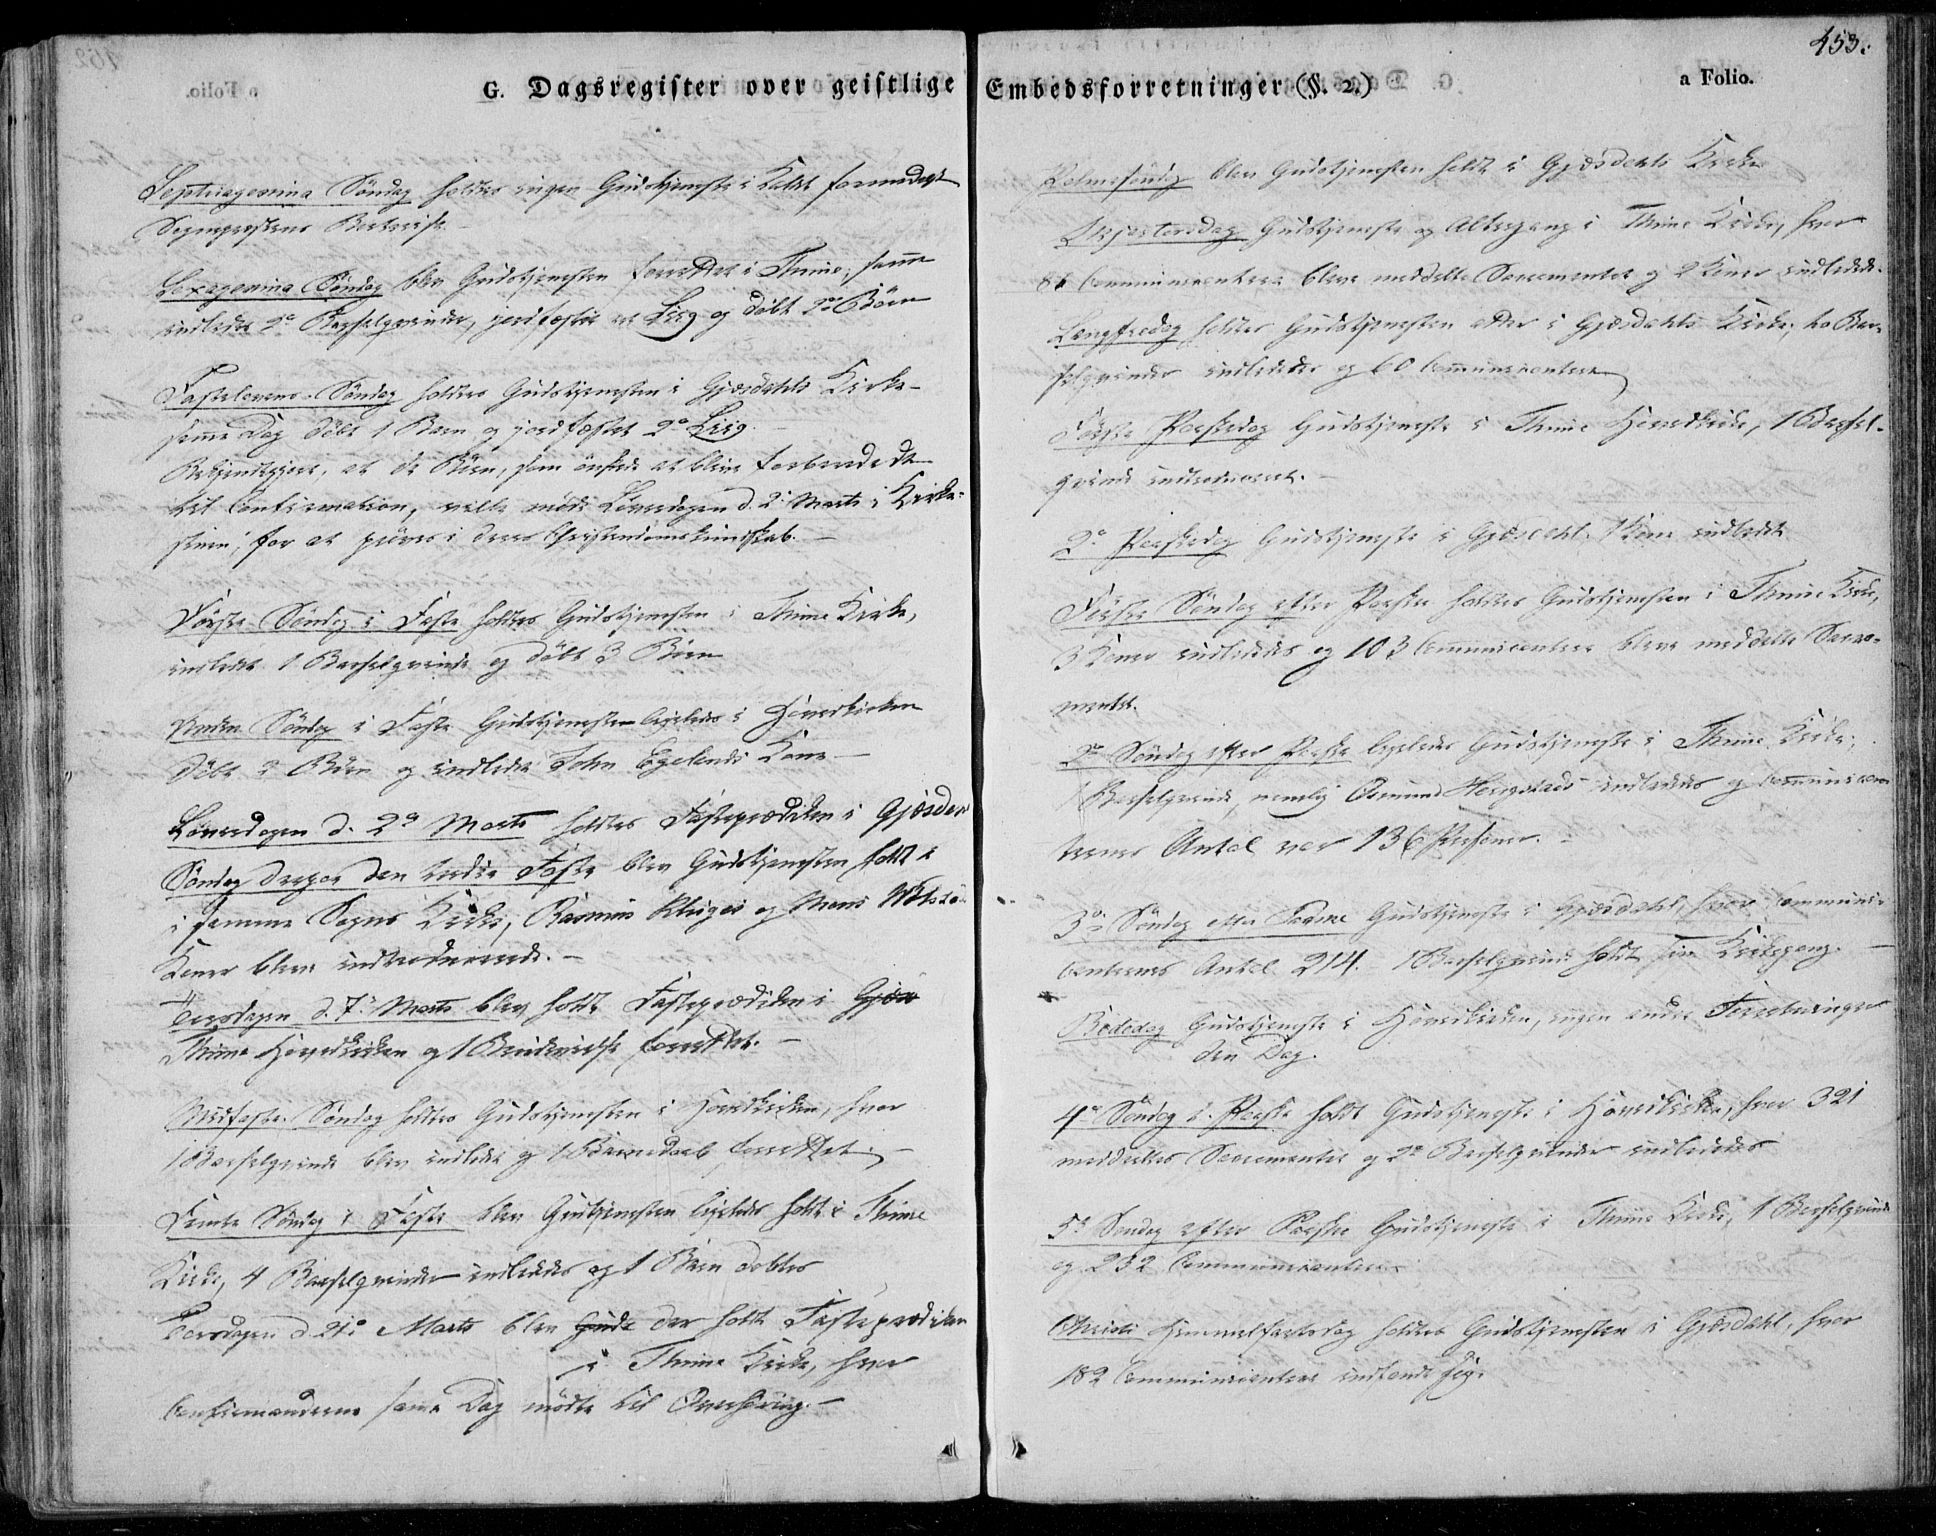 453.
G. Dagsregister over geistlige Embedsforretninger (§. 2.)
a Folio.
Septuagesima Søndag holdtes ingen Gudstjeneste i Kaldet formedelst
Sognepræstens
Sexagesima Søndag blev Gudstjenesten forrettet i Thime, samme
indledet 2de Barselqvinder, jordfæstet et Liig og døbt 2de Börn
Fastelavens-Søndag holdtes Gudstjenesten i Gjæsdahls Kirke
samme Dag døbt 1 Barn og jordfæstet 2de Liig.
Bekjendtgjort, at de Börn, som ønskede at blive forberedede
til Confirmation, ville møde Løverdagen d. 2den Marts i Kirke-
for at prøves i deres Christendomskundskab. –
Første Søndag i Faste holdtes Gudstjenesten i Thime Kirke,
indledet 1 Barselqvinde og døbt 3 Börn
Anden Søndag i Faste Gudstjenesten ligeledes i Hovedkirken
Döbt 2 Börn og indledet John Egelands Kone –
Løverdagen d. 2den Marts holdtes Fasteprædiken i Gjæsdal
Søndag derpaa den tredie i Faste blev Gudstjenesten holdt i
i samme Sogns Kirke, Rasmus og Mons
Koner bleve introducerede. –
Torsdagen d. 7de Marts blev holdt Fasteprædiken i Gjæs
Thime Hovedkirken og 1 Brudevielse forrettet. –
Midfaste Søndag holdtes Gudstjenesten i Hovedkirken, hvor
1 Barselqvinde blev indledet og 1 Barnedaab forrettet. –
Femte Søndag i Faste blev Gudstjenesten ligeledes holdt i Thime
Kirke, 4 Barselqvinder indleddes og 1 Barn døbtes
Torsdagen d. 21de Marts blev Guds der holdt Fasteprædiken
i Thime Kirke, hvor
Confirmanderne samme Dag mødte til Overhøring. –
Palmesøndag blev Gudstjenesten holdt i Gjæsdahls Kirke
Skjærtorsdag Gudstjeneste og Altergang i Thime Kirke, hvor
86 Communicantere bleve meddelte Sacramentet og 2 Koner indledede.
Langfredag holdtes Gudstjenesten atter i Gjæsdahls Kirke, to Bar-
selqvinder indlededes og 60 Communicantere
Første Paaskedag Gudstjeneste i Thime Hovedkirke, 1 Barsel-
qvinde introduceret. –
2den Paaskedag Gudstjeneste i Gjæsdahl. 1 Kone indledet
Første Søndag efter Paaske holdtes Gudstjenesten i Thime Kirke,
3 Koner indlededes og 103 Communicantere bleve meddelte Sacra-
mentet.
2den Søndag efter Paaske ligeledes Gudstjeneste i Thime Kirke,
1 Barselqvinde, nemlig Osmund indlededes og Communican
ternes Antal var 136 Personer. –
3die Søndag efter Paaske Gudstjeneste i Gjæsdahl, hvor Communi-
canternes Antal 214. 1 Barselqvinde holdt sin Kirkegang. –
Bededag Gudstjeneste i Hovedkirken, ingen andre Forretninger
den Dag.
4de Søndag e. Paaske holdt Gudstjeneste i Hovedkirken, hvor 321
meddeltes Sacramentet og 2de Barselqvinder indlededes
5te Søndag efter Paaske Gudstjeneste i Thime Kirke, 1 Barselqvinde
og 232 Communicantere
Christi Himmelfartsdag holdtes Gudstjenesten i Gjæsdahl, hvor
182 Communicantere indfandt sig.